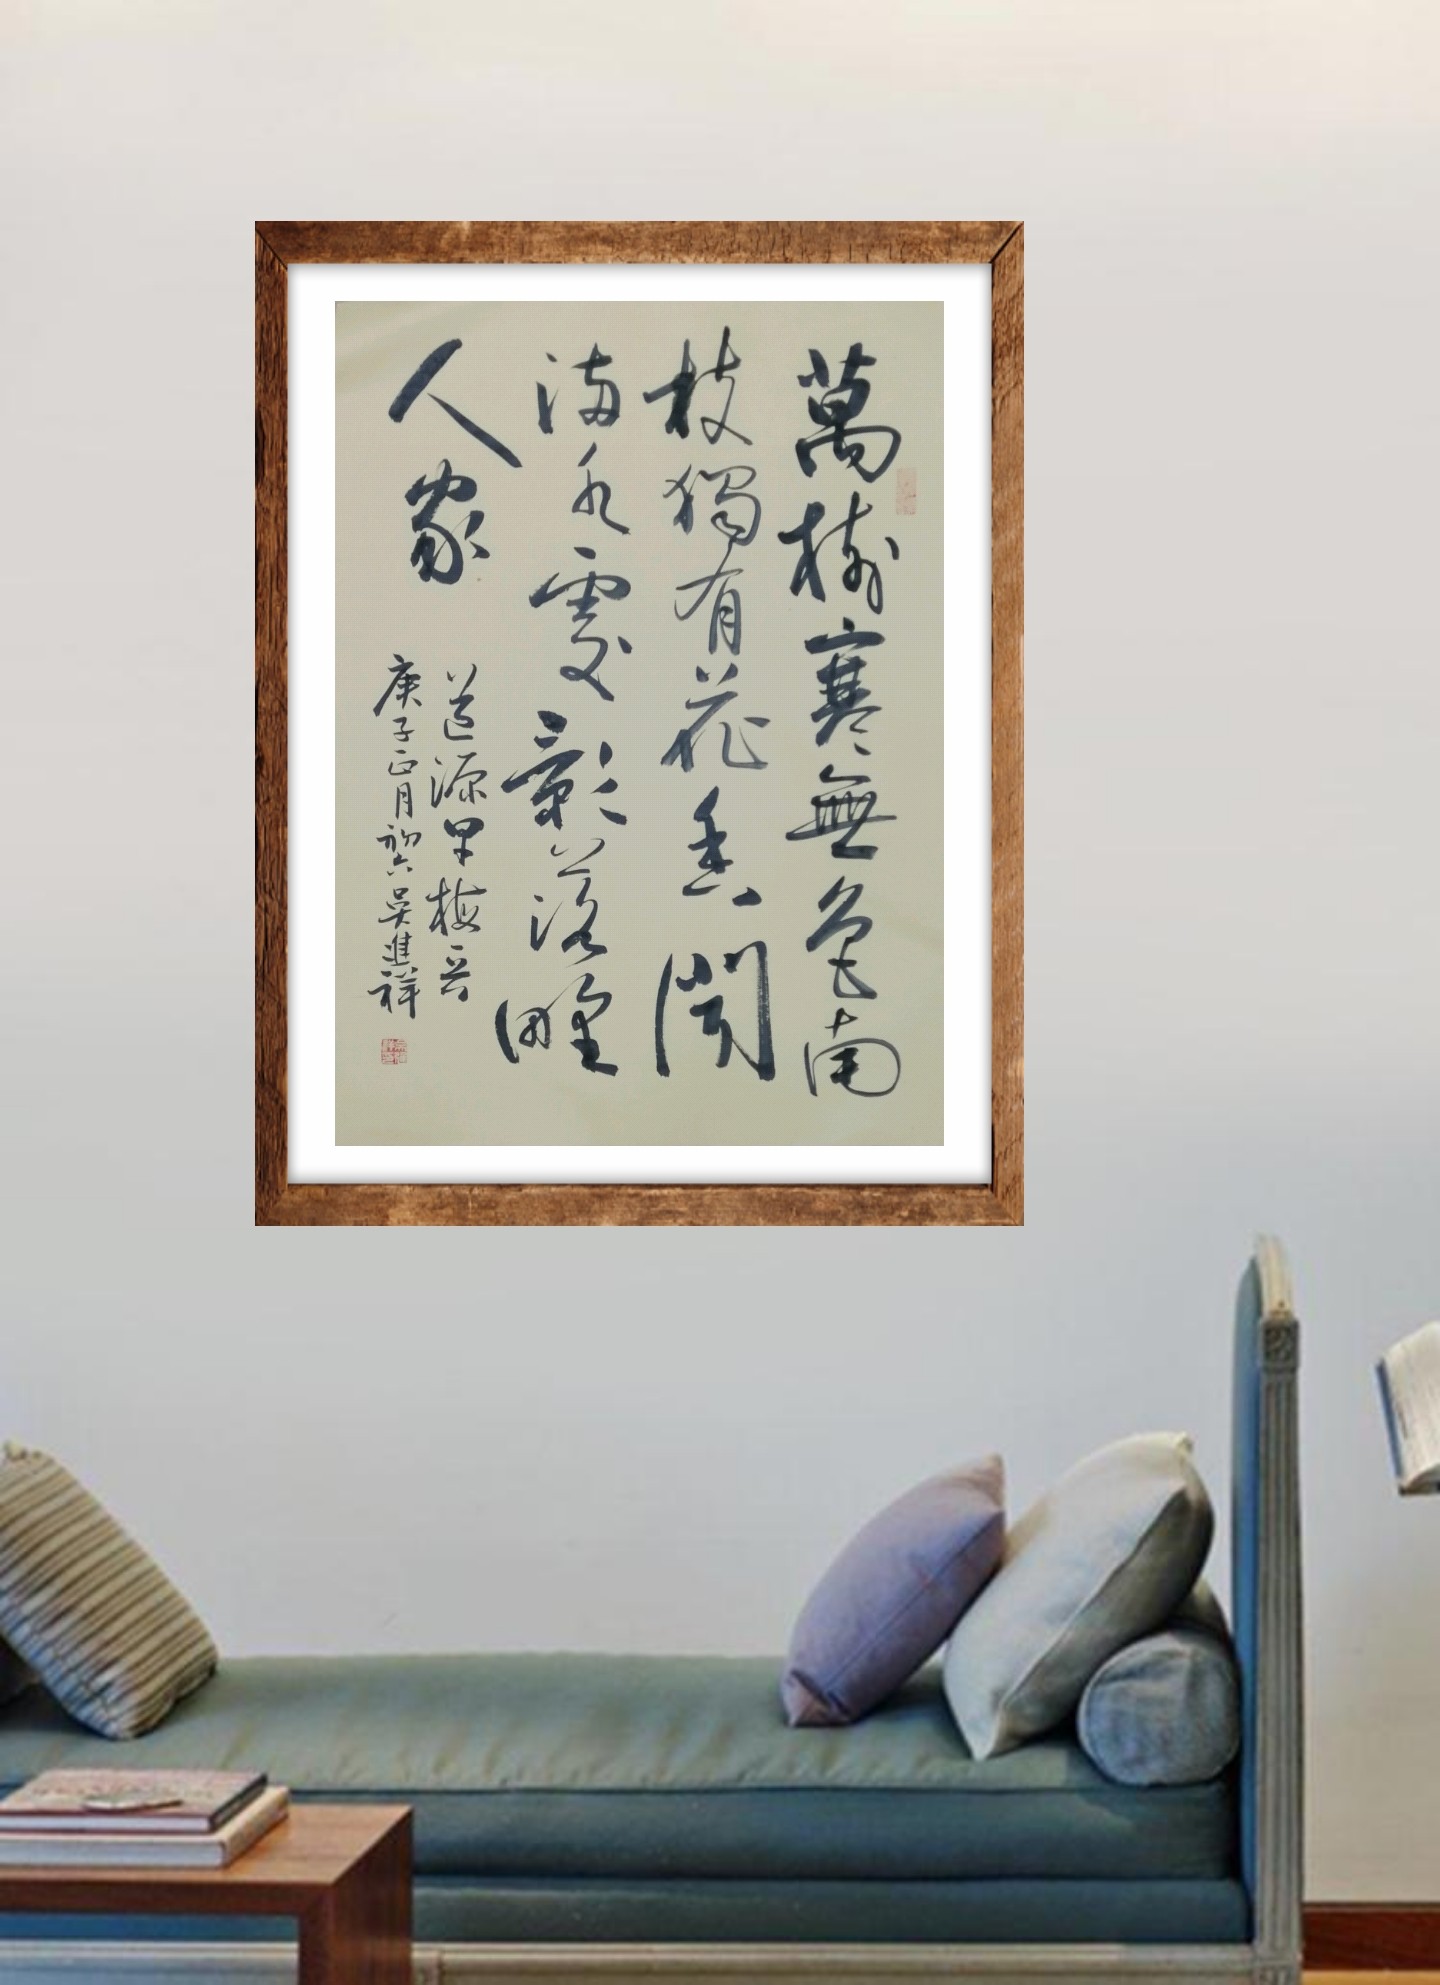 萬樹寒無色南
枝獨有花香聞
滿水處影落野
人家
道源早梅一首
庚子正月初六吳進祥